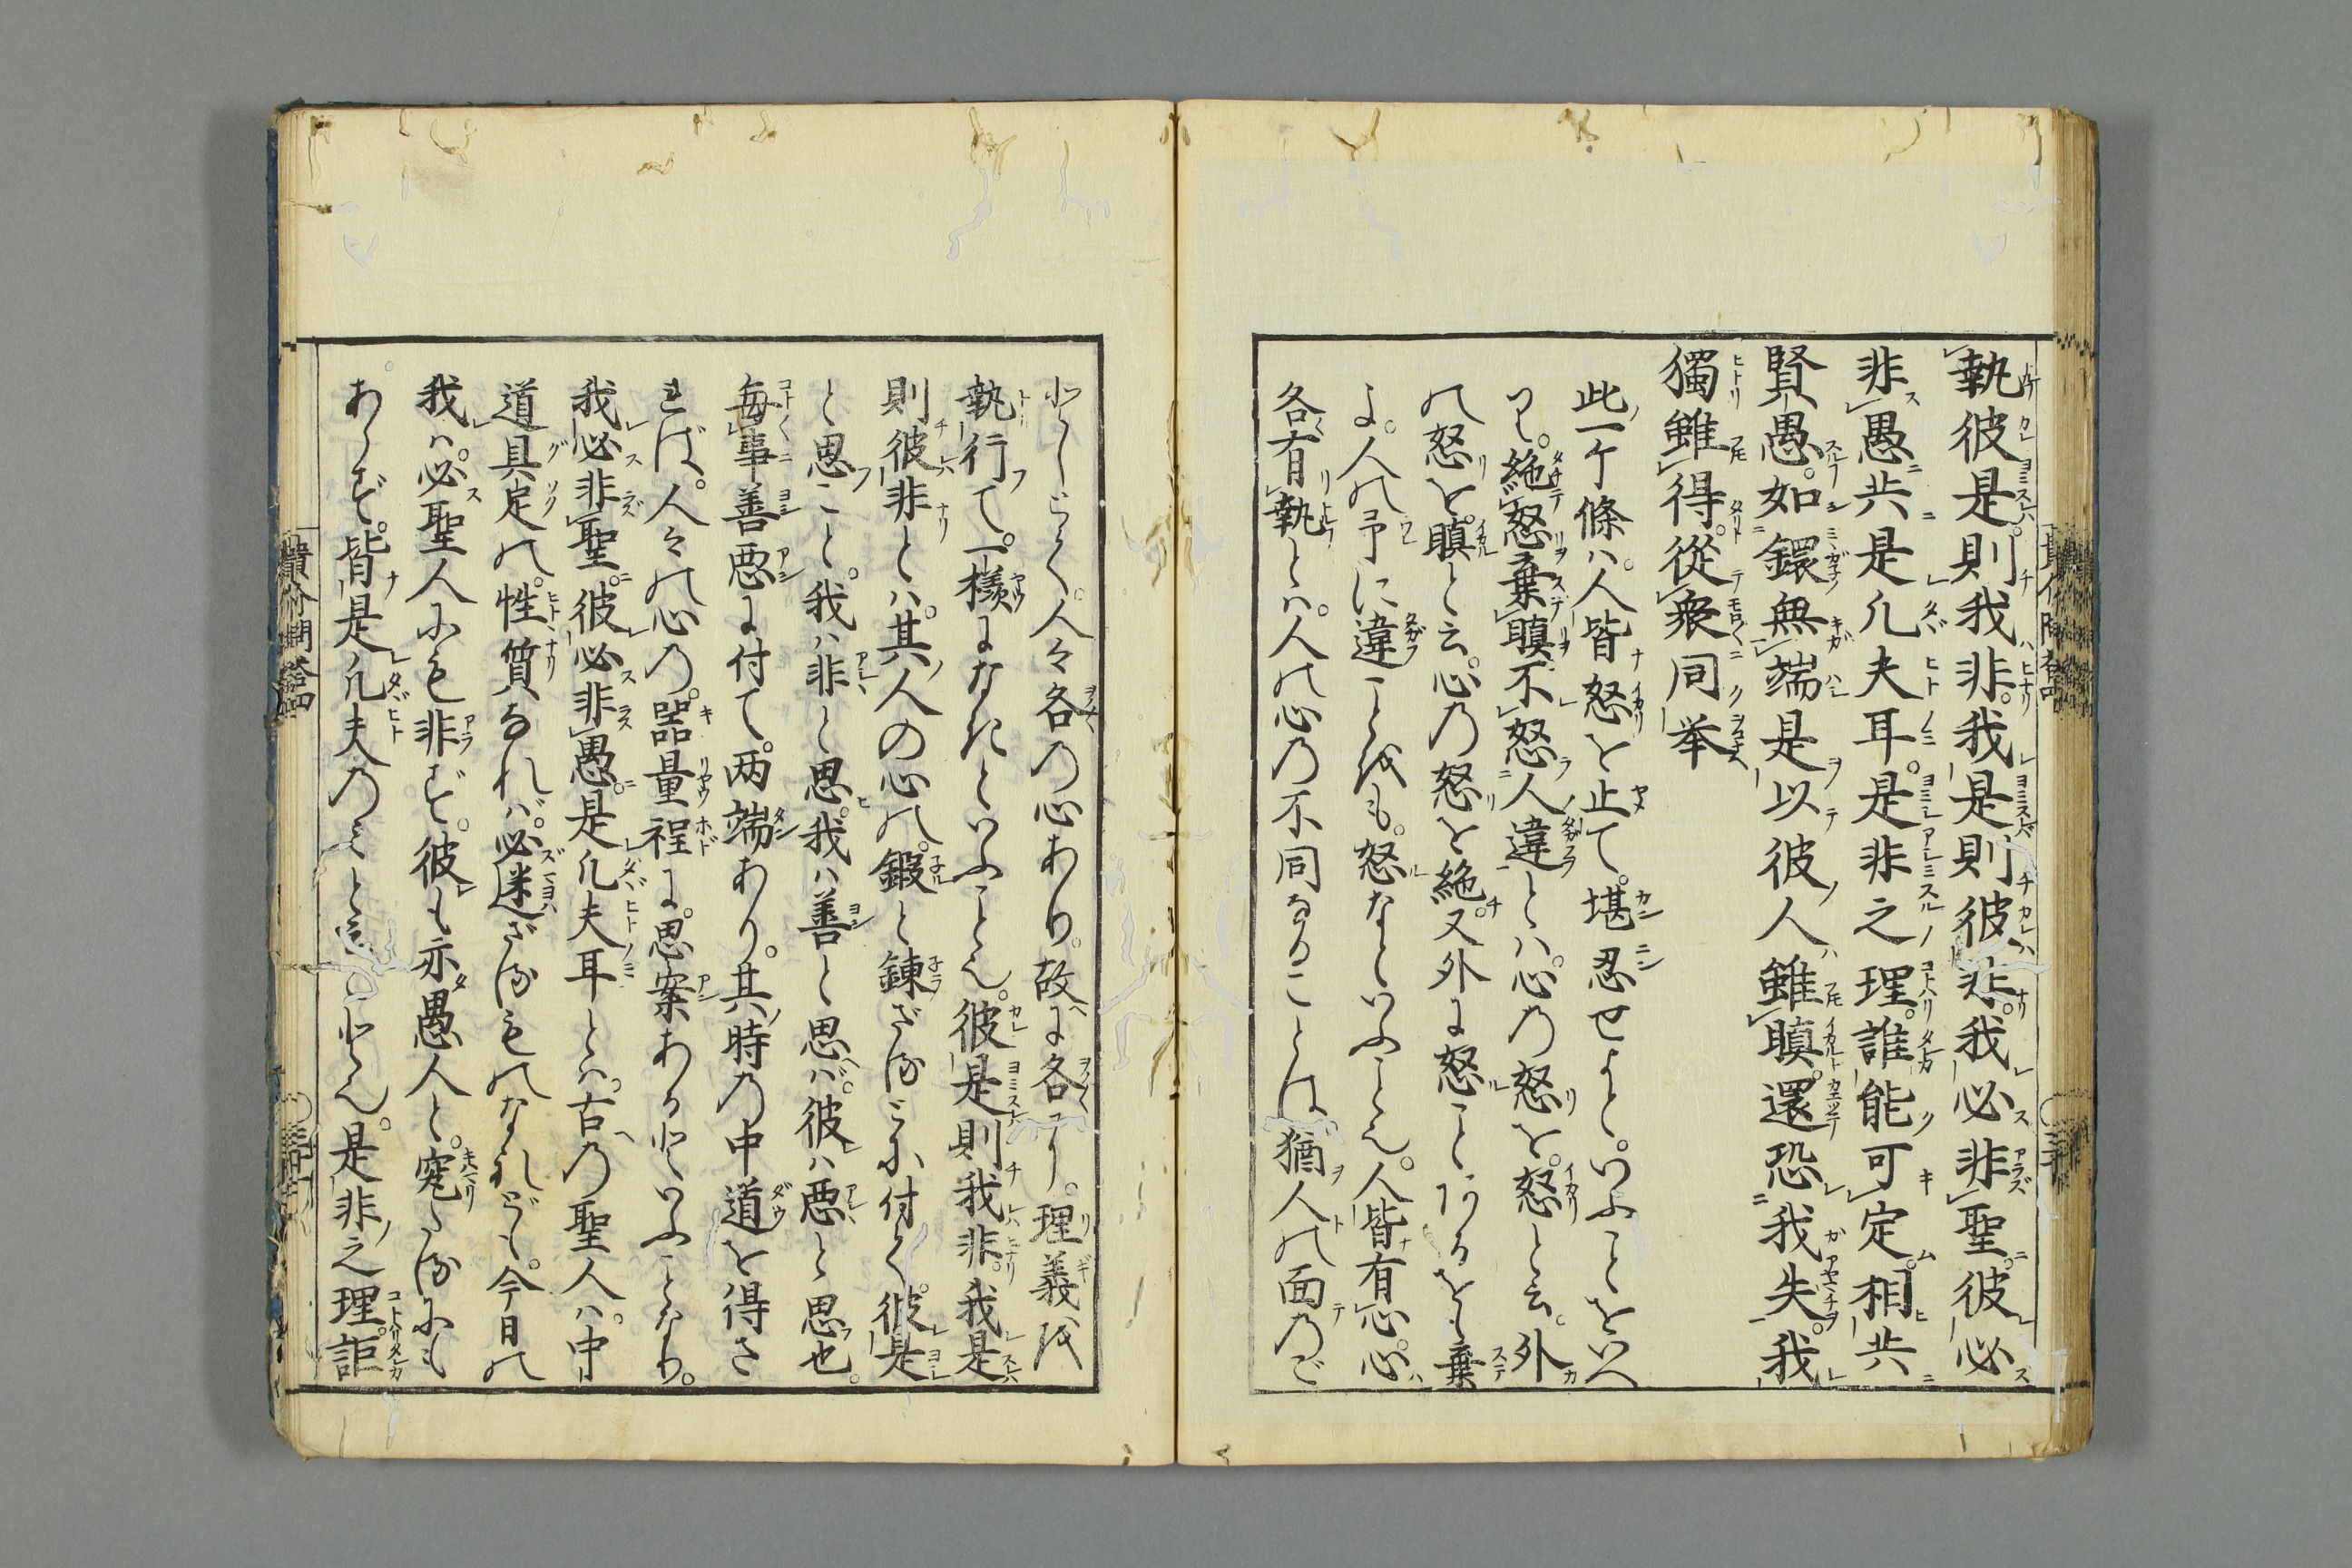 執彼是則我非我是則彼非我必非聖彼必
非愚共是凢夫耳是非之理誰能可定相共
賢愚如鐶無端是以彼人雖瞋還恐我失我
獨雖得從衆同挙
此一ケ條ハ人皆怒を止て堪忍せよと いふことをいへ
り 絶怒棄瞋不怒人違とハ心の怒を怒と云外
の怒を瞋と云心の怒を絶又外に怒ことあるをも棄
よ人の予に違ことをも怒なといふこと也人皆有心心
各有執とハ人の心の不同なることは猶人の面のご
としとかく人々各の心あり故に各に理義を
執行て一様になきといふこと也彼是則我非我是
則彼非とハ其人の心の鍛と錬ざるに付く彼是
と思ふこと我ハ非と思我ハ善と思ば彼ハ悪と思也
毎事善悪に付て両端あり其時の中道を得さ
れば人々の心の器量程に思案あるといふことなり
我必非聖彼必非愚是凢夫耳とハ古の聖人ハ中
道具足の性質なれバ必迷ざるものなれども今日の
我ハ必聖人にも非ず彼も亦愚人と究たるにも
あらず皆是凢夫のミと云こと也是非之理詎